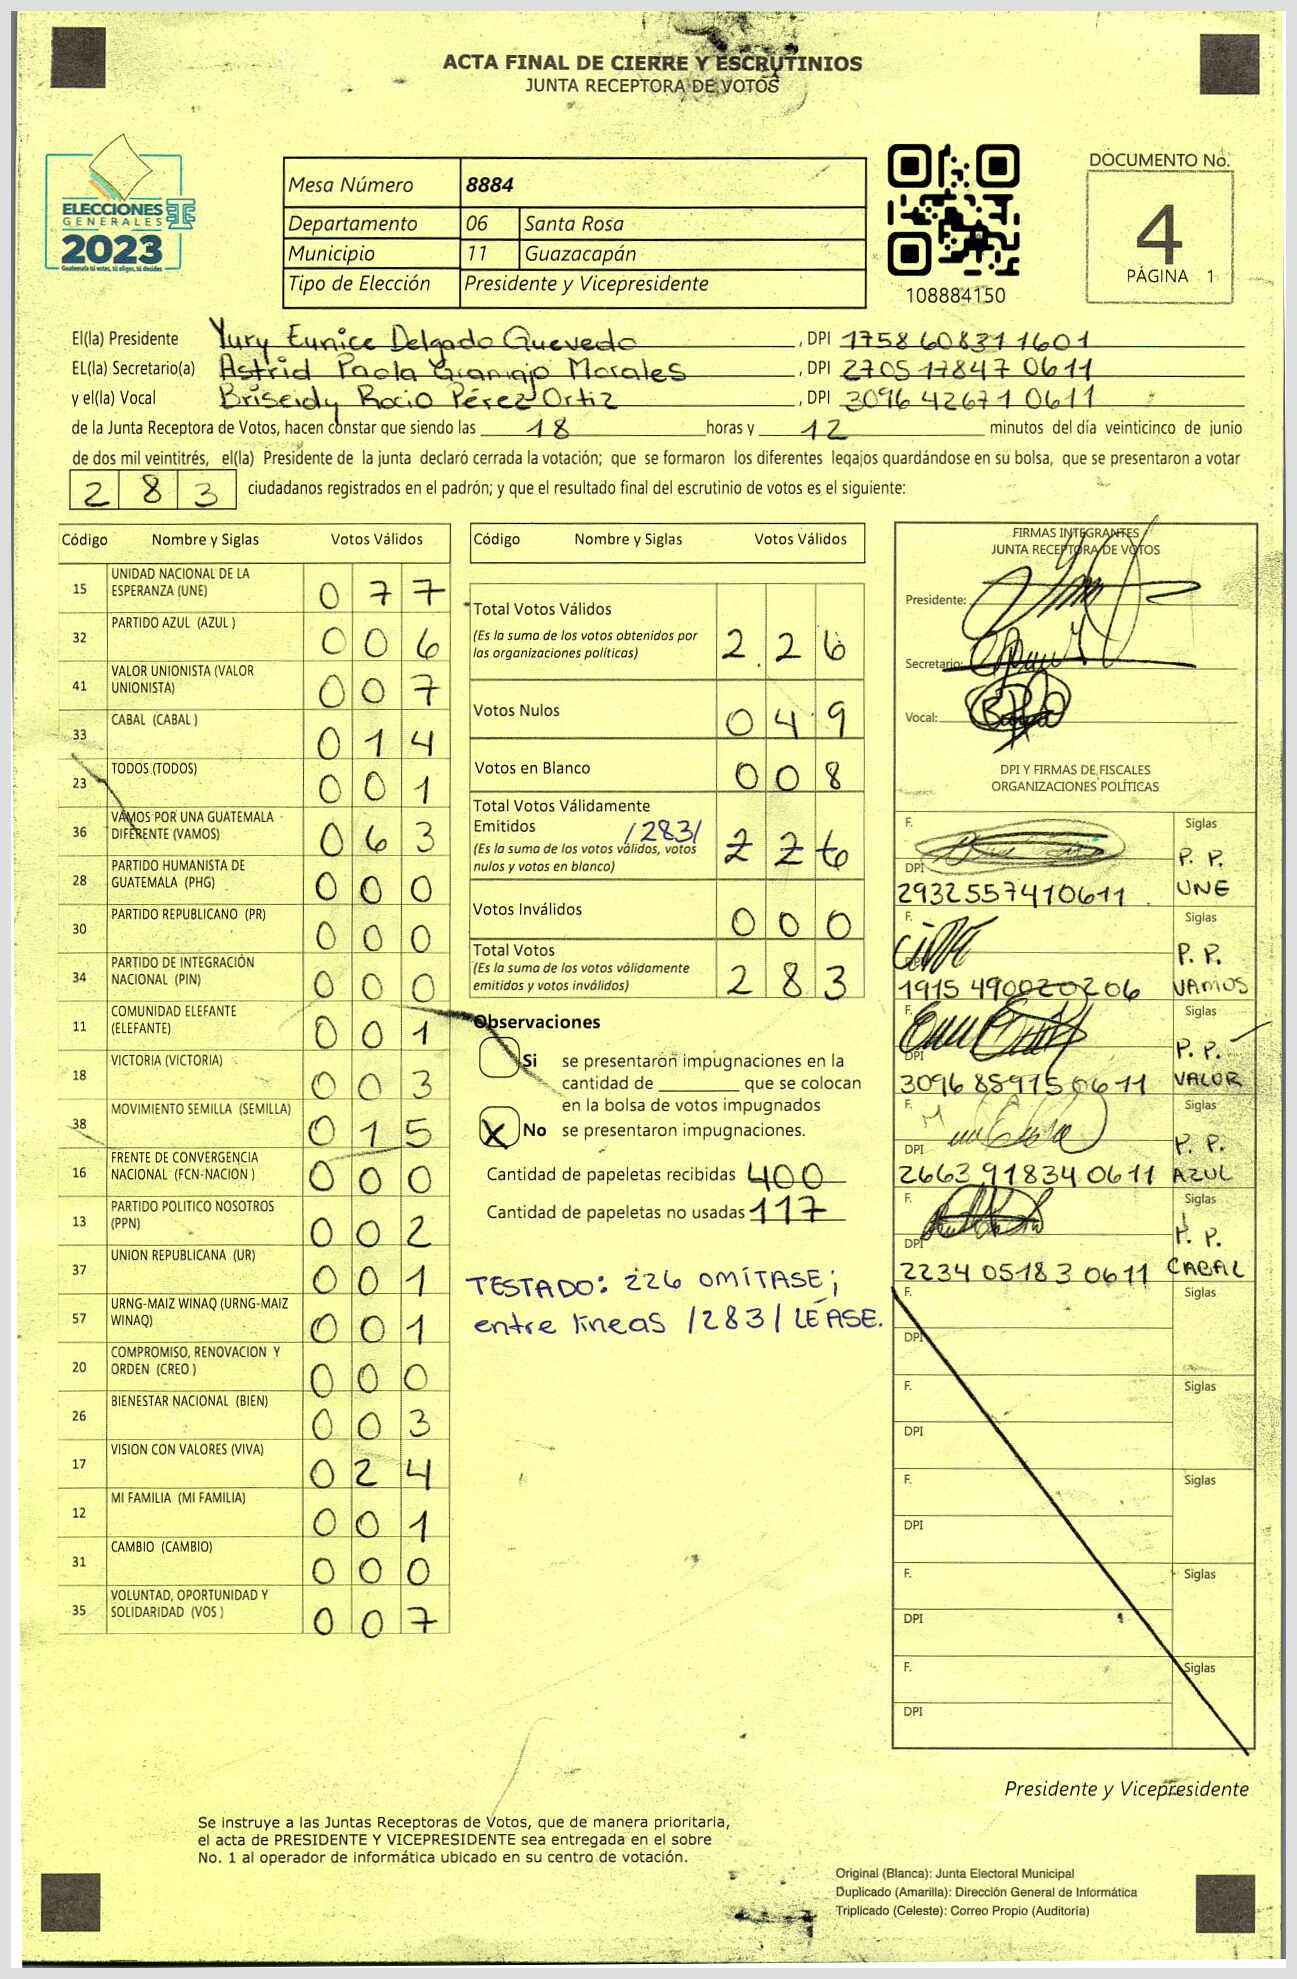 ACTA FINAL DE CIERRE Y ESCRUTINIOS
JUNTA RECEPTORA DE VOTOS
ELECCIONES
GENERALES
2023
Guatemala tú votas, tú eliges, tú decides
Mesa Número 8884
Departamento 06 Santa Rosa
Municipio 11 Guazacapán
Tipo de Elección Presidente y Vicepresidente
108884150
DOCUMENTO No.
4
PÁGINA 1
El(la) Presidente Yury Eunice Delgado Quevedo, DPI 1758 60831 1601
EL(la) Secretario(a) Astrid Paola Gramajo Morales, DPI 2705 17847 0611
y el(la) Vocal Briseidy Rocio Pérez Ortiz, DPI 3096 42671 0611
de la Junta Receptora de Votos, hacen constar que siendo las 18 horas y 12 minutos del día veinticinco de junio
de dos mil veintitrés, el(la) Presidente de la junta declaró cerrada la votación; que se formaron los diferentes legajos guardándose en su bolsa, que se presentaron a votar
283 ciudadanos registrados en el padrón; y que el resultado final del escrutinio de votos es el siguiente:
Código Nombre y Siglas Votos Válidos
15 UNIDAD NACIONAL DE LA ESPERANZA (UNE) 077
32 PARTIDO AZUL (AZUL ) 006
41 VALOR UNIONISTA (VALOR UNIONISTA) 007
33 CABAL (CABAL ) 014
23 TODOS (TODOS) 001
36 VAMOS POR UNA GUATEMALA DIFERENTE (VAMOS) 063
28 PARTIDO HUMANISTA DE GUATEMALA (PHG) 000
30 PARTIDO REPUBLICANO (PR) 000
34 PARTIDO DE INTEGRACIÓN NACIONAL (PIN) 000
11 COMUNIDAD ELEFANTE (ELEFANTE) 001
18 VICTORIA (VICTORIA) 003
38 MOVIMIENTO SEMILLA (SEMILLA) 015
16 FRENTE DE CONVERGENCIA NACIONAL (FCN-NACION ) 000
13 PARTIDO POLITICO NOSOTROS (PPN) 002
37 UNION REPUBLICANA (UR) 001
57 URNG-MAIZ WINAQ (URNG-MAIZ WINAQ) 001
20 COMPROMISO, RENOVACION Y ORDEN (CREO ) 000
26 BIENESTAR NACIONAL (BIEN) 003
17 VISION CON VALORES (VIVA) 024
12 MI FAMILIA (MI FAMILIA) 001
31 CAMBIO (CAMBIO) 000
35 VOLUNTAD, OPORTUNIDAD Y SOLIDARIDAD (VOS ) 007
Código Nombre y Siglas Votos Válidos
Total Votos Válidos 226
(Es la suma de los votos obtenidos por
las organizaciones políticas)
Votos Nulos 049
Votos en Blanco 008
Total Votos Válidamente
Emitidos /283/ 226
(Es la suma de los votos válidos, votos
nulos y votos en blanco)
Votos Inválidos 000
Total Votos 283
(Es la suma de los votos válidamente
emitidos y votos inválidos)
Observaciones
Si se presentaron impugnaciones en la
cantidad de ________ que se colocan
en la bolsa de votos impugnados
X No se presentaron impugnaciones.
Cantidad de papeletas recibidas 400
Cantidad de papeletas no usadas 117
TESTADO: 226 OMÍTASE;
entre líneas /283/ LÉASE.
FIRMAS INTEGRANTES
JUNTA RECEPTORA DE VOTOS
Presidente:
Secretario:
Vocal:
DPI Y FIRMAS DE FISCALES
ORGANIZACIONES POLÍTICAS
F. Siglas
DPI 2932557410611 P. P. UNE
F. Siglas
DPI 1915 490020206 P. P. VAMOS
F. Siglas
DPI 3096 85915 0611 P. P. VALOR
F. Siglas
DPI 2663 91834 0611 P. P. AZUL
F. Siglas
DPI 2234 05183 0611 P. P. CABAL
F. Siglas
DPI
F. Siglas
DPI
F. Siglas
DPI
F. Siglas
DPI
F. Siglas
DPI
Presidente y Vicepresidente
Se instruye a las Juntas Receptoras de Votos, que de manera prioritaria,
el acta de PRESIDENTE Y VICEPRESIDENTE sea entregada en el sobre
No. 1 al operador de informática ubicado en su centro de votación.
Original (Blanca): Junta Electoral Municipal
Duplicado (Amarilla): Dirección General de Informática
Triplicado (Celeste): Correo Propio (Auditoría)